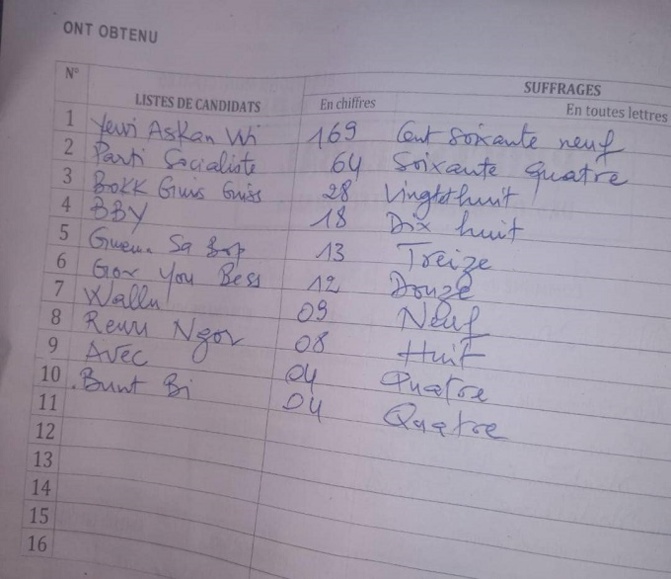 ONT OBTENU
N° LISTES DE CANDIDATS SUFFRAGES
En chiffres En toutes lettres
1 Yewi Askan Wi 169 Cent Soixante neuf
2 Parti Socialiste 64 Soixante quatre
3 Bokk Guiss Guiss 28 Vingthuit
4 BBY 18 Dix huit
5 Sa Bop 13 Treize
6 Gor You Bess 12 Douze
7 Wallu 09 Neuf
8 Rewu Ngor 08 Huit
9 Avec 04 Quatre
10 Bunt Bi 04 Quatre
11
12
13
14
15
16